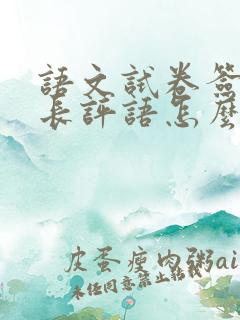 語文試卷簽
長評語怎麼
皮蛋瘦肉粥ai
未任同意禁止轉載